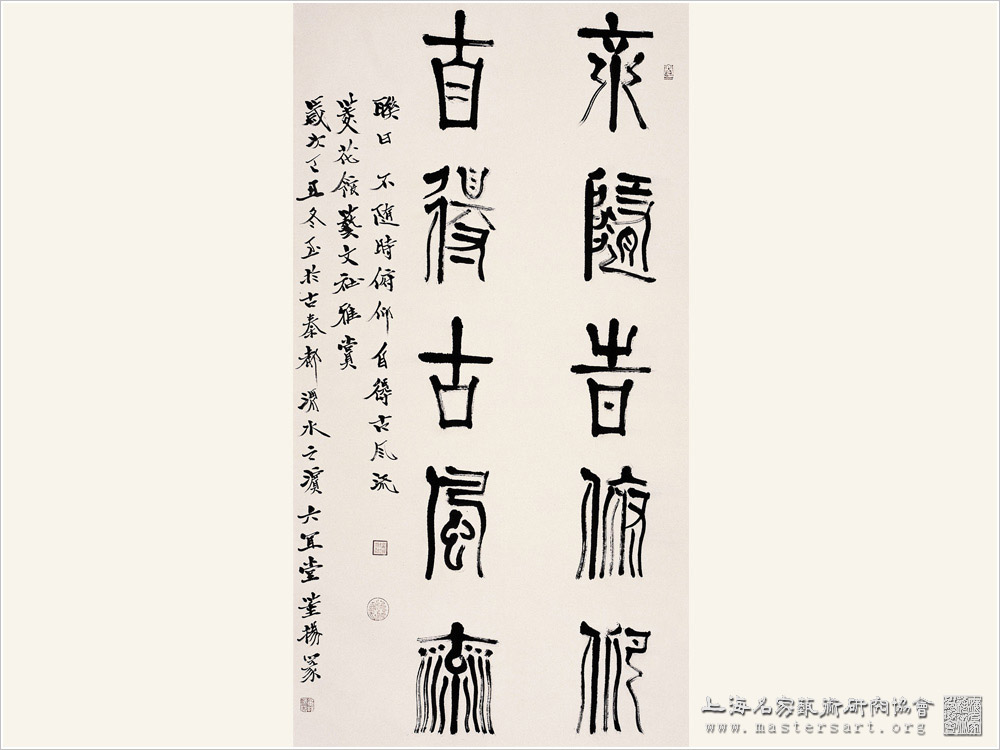 不隨時俯仰
自得古風流
聯曰 不隨時俯仰 自得古風流
菱花館藝文社雅賞
歲次丁丑冬至於古秦都 渭水之濱 六宜堂 董揚篆
上海名家藝術研究協會
www.mastersart.org